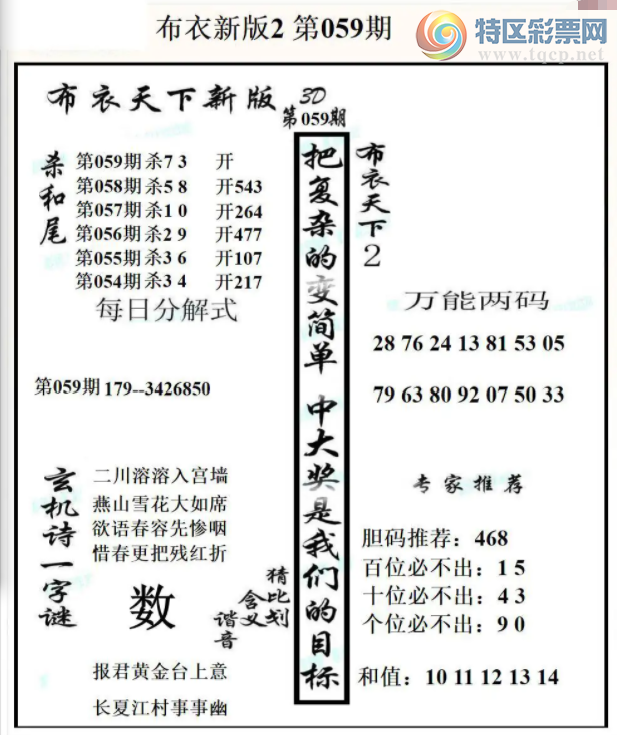 布衣新版2 第059期
特区彩票网
www.tqcp.net
布衣天下新版 3D
第059期
杀和尾
第059期 杀7 3 开
第058期 杀5 8 开543
第057期 杀1 0 开264
第056期 杀2 9 开477
第055期 杀3 6 开107
第054期 杀3 4 开217
每日分解式
第059期 179--3426850
玄机诗一字谜
二川溶溶入宫墙
燕山雪花大如席
欲语春容先惨咽
惜春更把残红折
数
猜比划
含义
谐音
报君黄金台上意
长夏江村事事幽
把复杂的变简单 中大奖是我们的目标
布衣天下2
万能两码
28 76 24 13 81 53 05
79 63 80 92 07 50 33
专家推荐
胆码推荐：468
百位必不出：1 5
十位必不出：4 3
个位必不出：9 0
和值：10 11 12 13 14